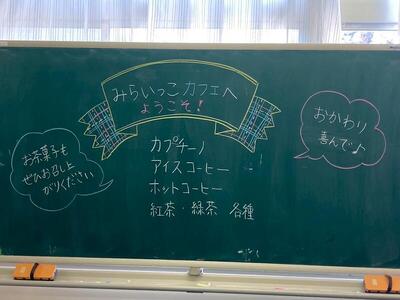 みらいっこカフェへ
ようこそ!
カプチーノ
アイスコーヒー
ホットコーヒー
紅茶・緑茶 各種
お茶菓子も
ぜひお召し上
がりください
おかわり
喜んで♪